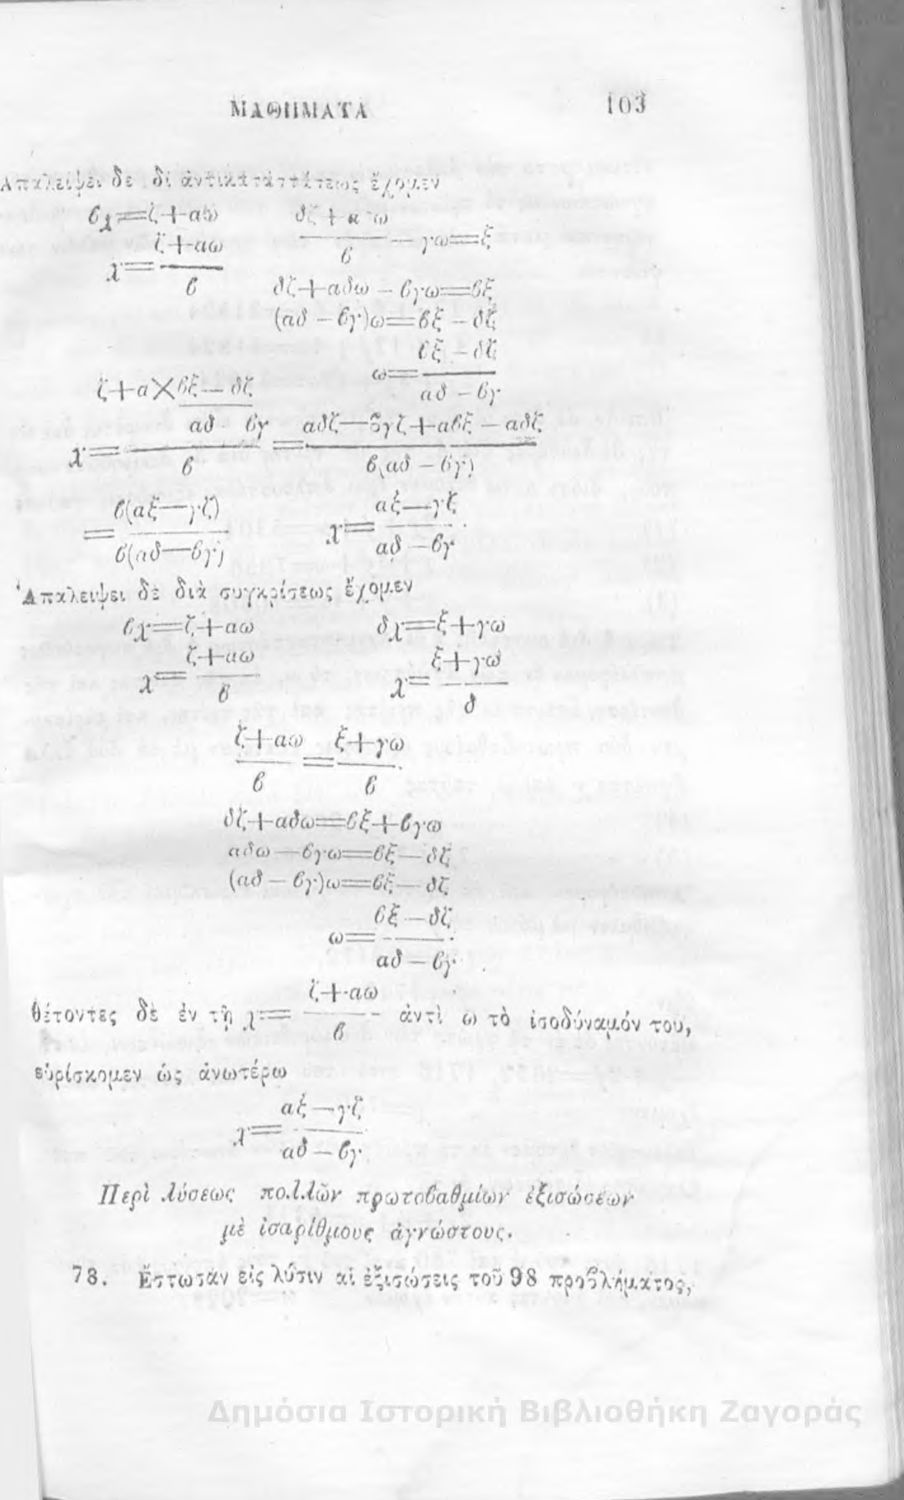 ΜΑΘΗΜΑΤΑ 103
Ἀπαλείψει δὲ δι ἀντικαταστάσεως ἔχομεν
βχ=ζ+αω δζ+αδω
χ= ζ+αω / β — / β — γω=ξ
δζ+αδω – βγω=βξ
(αδ – βγ)ω=βξ – δζ
ω= βξ – δζ / αδ – βγ
ζ+α×βξ – δζ
αδ βγ αδζ—βγζ+αβξ – αδζ
χ= — / β = — / β(αδ – βγ)
= β(αξ—γζ) / β(αδ—βγ) χ= αξ—γζ / αδ – βγ
Ἀπαλειψει δὲ διὰ συγκρίσεως ἔχομεν
βχ=ζ+αω δχ=ξ+γω
χ= ζ+αω / β χ= ξ+γω / δ
ζ+αω / β = ξ+γω / β
δζ+αδω=βξ+βγω
αδω – βγω=βξ – δζ
(αδ – βγ)ω=βξ – δζ
ω= βξ – δζ / αδ – βγ
θέτοντες δὲ ἐν τῇ χ= ζ+αω / β ἀντὶ ω τὸ ἰσοδύναμόν του,
εὑρίσκομεν ὡς ἀνωτέρω
χ= αξ – γζ / αδ – βγ
Περὶ λύσεως πολλῶν πρωτοβαθμίων ἐξισώσεων
μὲ ἰσαρίθμους ἀγνώστους.
78. Ἔστωσαν εἰς λύσιν αἱ ἐξισώσεις τοῦ 98 προβλήματος,
Δημόσια Ιστορική Βιβλιοθήκη Ζαγοράς